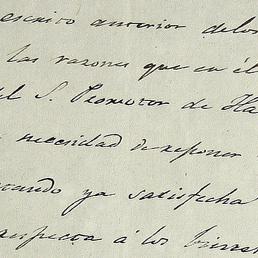 escrito anterior delos
las razones que en él
el S. Promotor de Ha
necesidad de reponer
ya satisfecha
respecta á los bienes